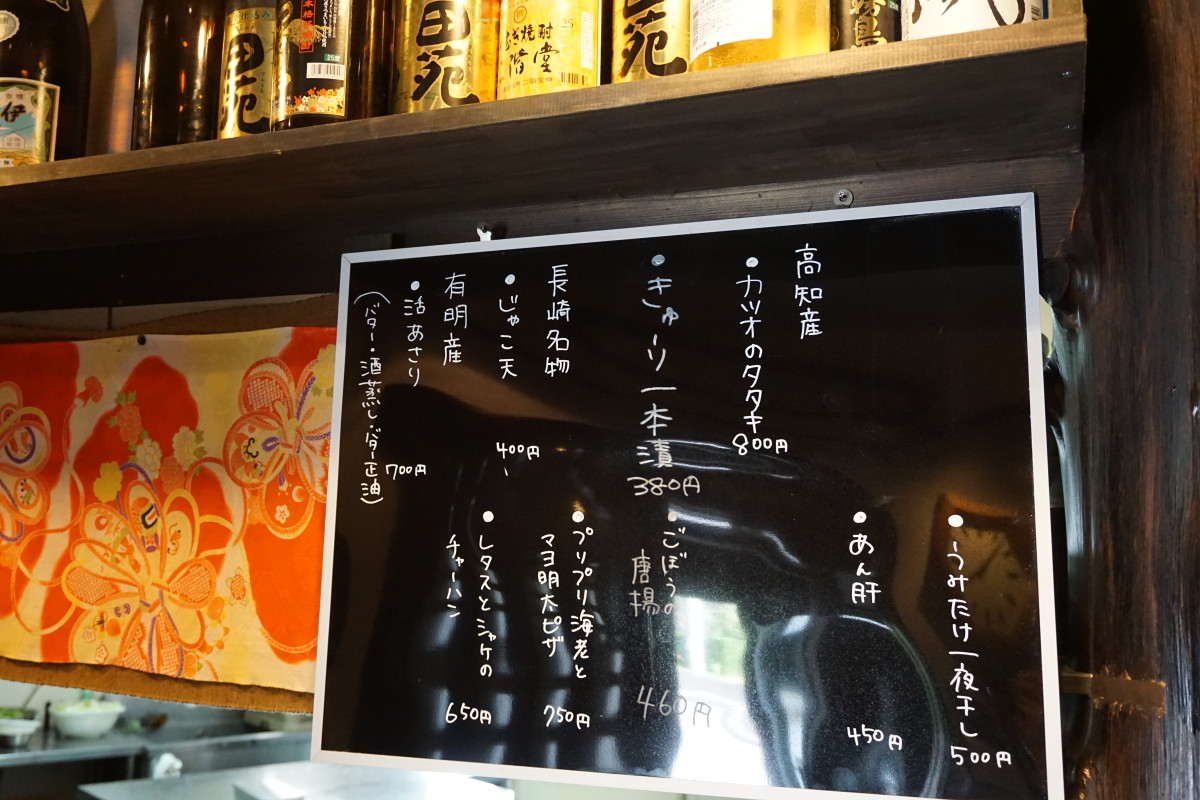 伊
田苑
本格
田苑
25
むぎ焼酎
二階堂
田苑
霧島
高知産
・カツオのタタキ
800円
・きゅーり一本漬
380円
長崎名物
・じゃこ天
400円
有明産
・活あさり
700円
(バター・酒蒸し・バター正油)
・うみたけ一夜干し
500円
・あん肝
450円
・ごぼうの
唐揚
460円
・プリプリ海老と
マヨ明太ピザ
750円
・レタスとシャケの
チャーハン
650円